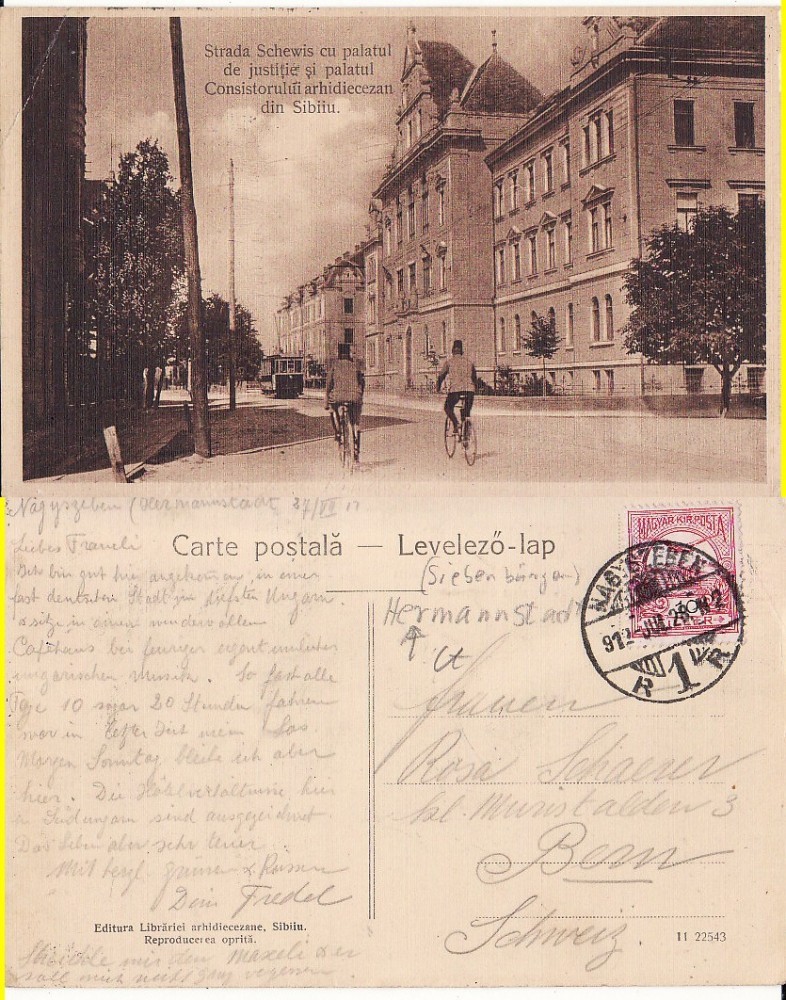 Strada Schewis cu palatul
de justiție și palatul
Consistorului arhidiecezan
din Sibiiu.
Nagyszeben (Hermannstadt 27/VII 12
Liebes Fraueli
Carte poștală — Levelező-lap
MAGYAR KIR. POSTA
NAGYSZEBEN
912 JUL 28
1
Bin gut hier angekommen, in einer
fast deutschen Stadt im tiefsten Ungarn
& sitze in einem wundervollen
Cafehaus bei feuriger eigentümlicher
ungarischer Musik. So fast alle
Tage 10 sogar 20 Stunden fahren
war in letzter Zeit mein Los.
Morgen Sonntag bleibe ich aber
hier. Die Hotelverhältnisse hier
in Südungarn sind ausgezeichnet.
Das Leben aber sehr teuer.
Mit herzl. Grüssen & Küssen
Dein Fredel
(Siebenbürgen)
Hermannstadt
Frauen
Rosa Schaerer
kl. Muristalden 3
Bern
Schweiz.
Editura Librăriei arhidiecezane, Sibiiu.
Reproducerea oprită.
11 22543
mir den Maxeli & er
soll mich nicht ganz vergessen.